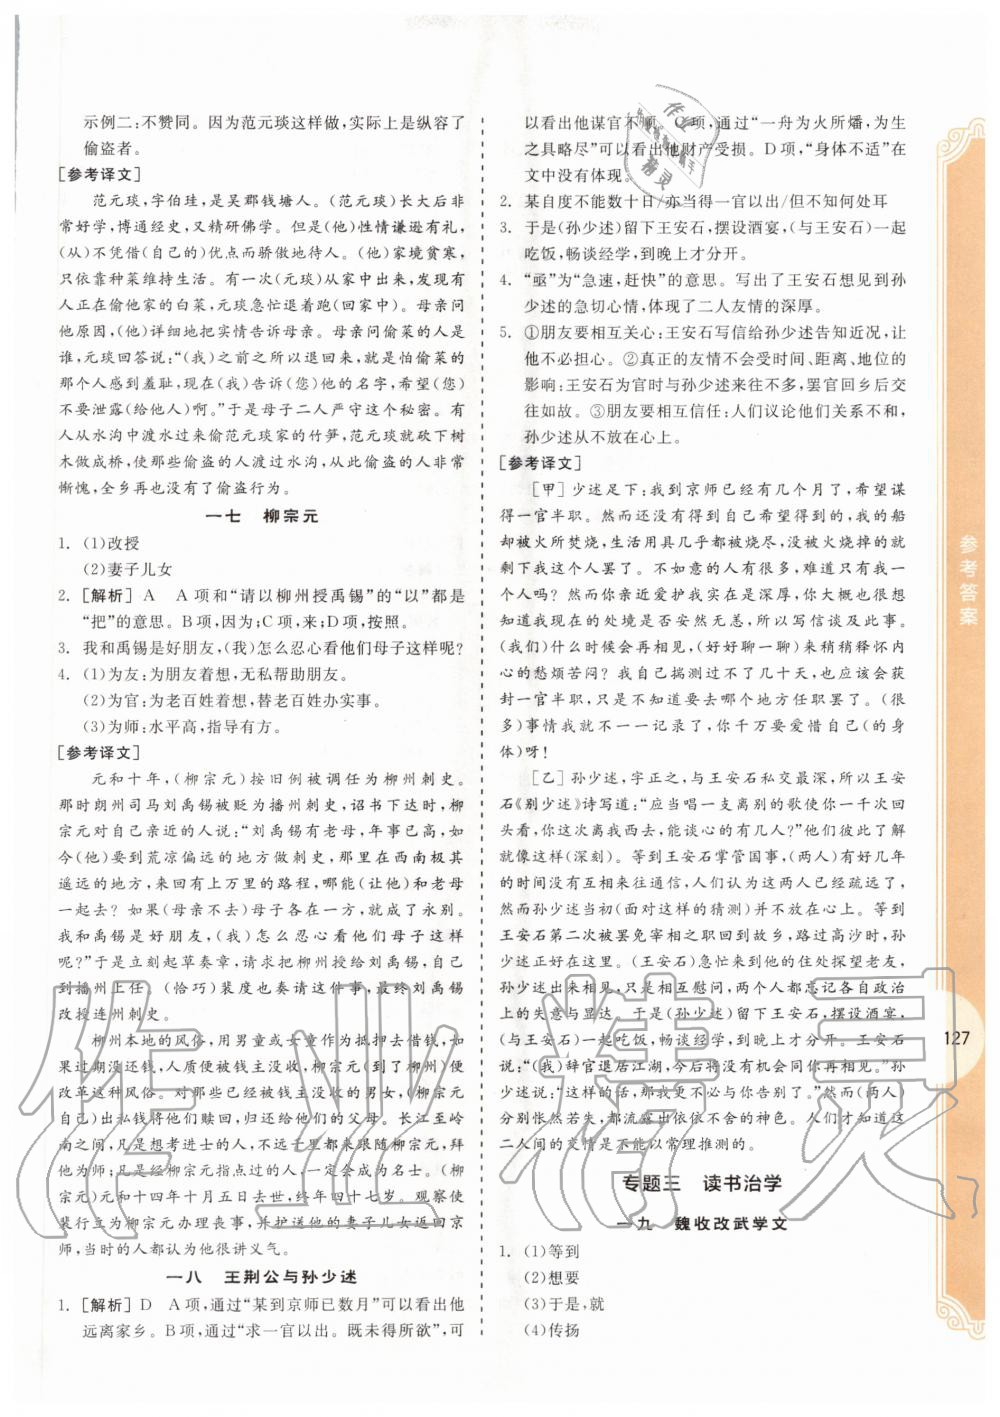 示例二:不赞同。因为范元琰这样做,实际上是纵容了
偷盗者。
[参考译文]
范元琰,字伯珪,是吴郡钱塘人。(范元琰)长大后非
常好学,博通经史,又精研佛学。但是(他)性情谦逊有礼,
(从)不凭借(自己的)优点而骄傲待人。(他)家境贫寒,
只依靠种菜维持生活。有一次(元琰)从家中出来,发现有
人正在偷他家的白菜,元琰急忙退着跑(回家中)。母亲问
他原因,(他)详细地把实情告诉母亲。母亲问偷菜的人是
谁,元琰回答说:“(我)之前之所以退回来,就是怕偷菜的
那个人感到羞耻,现在(我)告诉(您)他的名字,希望(您)
不要泄露(给他人)啊。”于是母子二人严守这个秘密。有
人从水沟中渡水过来偷范元琰家的竹笋,范元琰就砍下树
木做成桥,使那些偷盗的人渡过水沟,从此偷盗的人非常
惭愧,全乡再也没有了偷盗行为。
一七 柳宗元
1. (1)改授
(2)妻子儿女
2. [解析] A A项和“请以柳州授禹锡”的“以”都是
“把”的意思。B项,因为;C项,来;D项,按照。
3. 我和禹锡是好朋友,(我)怎么忍心看他们母子这样呢?
4. (1)为友:为朋友着想,无私帮助朋友。
(2)为官:为老百姓着想,替老百姓办实事。
(3)为师:水平高,指导有方。
[参考译文]
元和十年,(柳宗元)按旧例被调任为柳州刺史。
那时朗州司马刘禹锡被贬为播州刺史,诏书下达时,柳
宗元对自己亲近的人说:“刘禹锡有老母,年事已高,如
今(他)要到荒凉偏远的地方做刺史,那里在西南极其
遥远的地方,来回有上万里的路程,哪能(让他)和老母
一起去呢?如果(母亲不去)母子各在一方,就成了永别。
我和禹锡是好朋友,(我)怎么忍心看他们母子这样
呢?”于是立刻起草奏章,请求把柳州授给刘禹锡,自己
到播州上任。(恰巧)裴度也奏请这件事,最终刘禹锡
改授连州刺史。
柳州本地的风俗,用男童或女童作为抵押去借钱,如
果过期没还钱,人质便被钱主没收,柳宗元(到了柳州)便
改革这种风俗。对那些已经被钱主没收的男女,柳宗元
自己出私钱将他们赎回,归还给他们的父母。长江至岭
南之间,凡是想考进士的人,不远千里都来跟随柳宗元,拜
他为师;凡是经柳宗元指点过的人,一定会成为名士。(柳
宗元)元和十四年十月五日去世,终年四十七岁。观察使
裴行立为柳宗元办理丧事,并护送他的妻子儿女返回京
师,当时的人都认为他很讲义气。
一八 王荆公与孙少述
1. [解析] D A项,通过“某到京师已数月”可以看出他
远离家乡。B项,通过“求一官以出。既未得所欲”,可
以看出他谋官不顺。C项,通过“一舟为火所燔,为生
之具略尽”可以看出他财产受损。D项,“身体不适”在
文中没有体现。
2. 某自度不能数十日/亦当得一官以出/但不知何处耳
3. 于是(孙少述)留下王安石,摆设酒宴,(与王安石)一起
吃饭,畅谈经学,到晚上才分开。
4. “亟”为“急速,赶快”的意思。写出了王安石想见到孙
少述的急切心情,体现了二人友情的深厚。
5. ①朋友要相互关心:王安石写信给孙少述告知近况,让
他不必担心。②真正的友情不会受时间、距离、地位的
影响:王安石为官时与孙少述来往不多,罢官回乡后交
往如故。③朋友要相互信任:人们议论他们关系不和,
孙少述从不放在心上。
[参考译文]
[甲]少述足下:我到京师已经有几个月了,希望谋
得一官半职。然而还没有得到自己希望得到的,我的船
却被火所焚烧,生活用具几乎都被烧尽,没被火烧掉的
只有人罢了。不如意的事一件接着一件,难道只有这件
事吗?然而你亲近爱护我实在是深厚,你大概也很想
知道我现在的处境是否安然无恙,所以写信谈及此事。
(我们)什么时候会再相见,(好好聊一聊)来稍稍释怀内
心的愁烦苦闷?我自己揣测过不了几十天,也应当会获
封一官半职,只是不知道要去哪个地方任职罢了。(很
多)事情我就不一一记录了,你千万要爱惜自己(的身
体)呀!
[乙]孙少述,字正之,与王安石私交最深,所以王安
石《别少述》诗写道:“应当唱一支离别的歌使你一次回
头看,你为什么离我西去,能谈心的有几人?”他们彼此了解
就像这样(深刻)。等到王安石掌管国事,(两人)有好几年
的时间没有互相来往通信,人们认为这两人已经疏远了,
然而孙少述当初(面对这样的猜测)并不在心上。等到
王安石第二次被罢免宰相之职回到故乡,路过高沙时,孙
少述正好在这里。(王安石)急忙赶往他的住处探望老友,
孙少述出来相见,只是相互慰问,两个人都忘记各自政治
上的失意与显达。于是(孙少述)留下王安石,摆设酒宴,
(与王安石)一起吃饭,畅谈经学,到晚上才分开。王安石
说:“(我)辞官退居江湖,今后将没有机会同你一拜了。”孙
少述说:“这样的话,我更不必与你告别了。”然而(两人)
分别怅然若失,都流露出依依不舍的神色。人们才知道这
二人间的交情是不能以常理推测的。
专题三 读书治学
一九 魏收改武学文
1. (1)等到
(2)想要
(3)于是,就
(4)传扬
参考答案
127
作业精灵